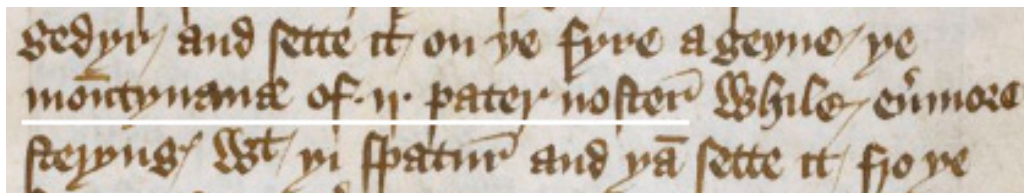 gedyr and sette it on ye fyre ageyne ye
mōtynance of .ij. pater noster While eũmore
steryng Wt yi spatur and yā sette it fro ye